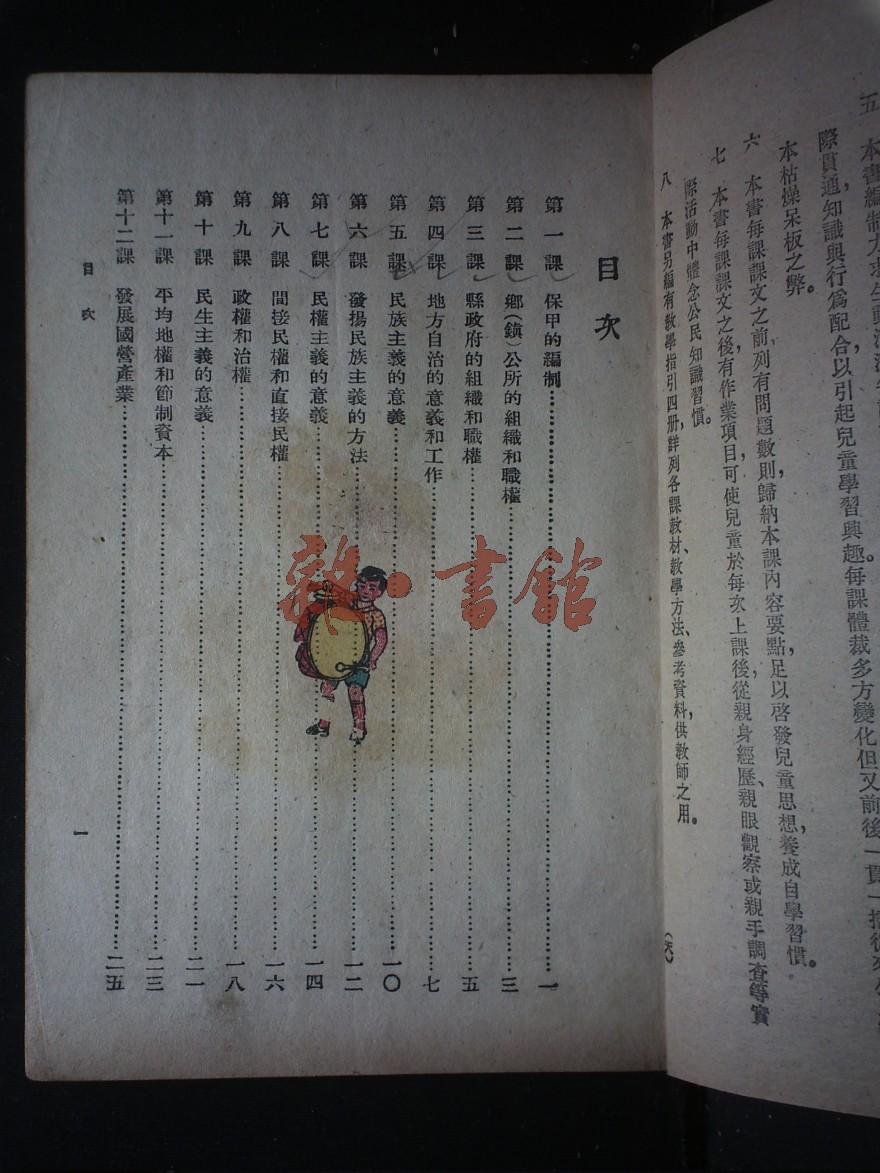 五 本書編制力求生動活潑
際貫通,知識與行爲配合以引起兒童學習興趣每課體裁多方變化但又前後一貫一掃從來
本枯燥呆板之弊。
六 本書每課課文之前列有問題數則歸納本課內容要點,足以啓發兒童思想,養成自學習慣。
七 本書每課課文之後有作業項目可使兒童於每次上課後,從親身經歷、親眼觀察或親手調查等實
際活動中體念公民知識習慣。
八 本書另編有教學指引四册,詳列各課教材、教學方法、參考資料,供教師之用。
目次
第一課 保甲的編制 一
第二課 鄉(鎮)公所的組織和職權 三
第三課 縣政府的組織和職權 五
第四課 地方自治的意義和工作 七
第五課 民族主義的意義 一〇
第六課 發揚民族主義的方法 一二
第七課 民權主義的意義 一四
第八課 間接民權和直接民權 一六
第九課 政權和治權 一八
第十課 民生主義的意義 二一
第十一課 平均地權和節制資本 二三
第十二課 發展國營產業 二五
目次
一
雜·書館